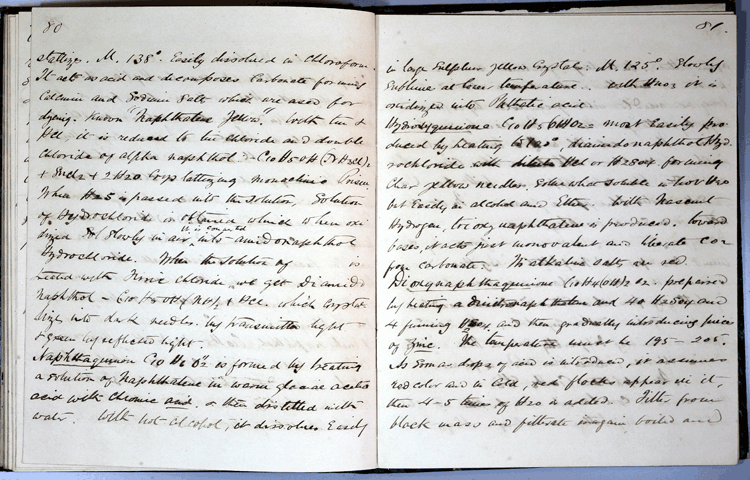 80
stallize. M. 138°. Easily dissolved in Chloroform.
It acts as acid and decomposes Carbonate forming
Calcium and Sodium Salts which are used for
dyeing. known "Naphthalene Yellow". With tin &
Hcl, it is reduced to tin chloride and double
chloride of alpha naphthol
+ 2H2O Crystallizing monoclinic Prism
When H2S is passed into the solution, Solution
of Hydrochloride is obtained which when oxi
dized slowly in air, it is converted into amidonaphthol
hydrochloride. When the solution of is
treated with Ferric chloride, we get Diamido
naphthol which Crystal
lize into dark needles by transmitted light
& green by reflected light.
Naphthaquinon C10 H6 O2 is formed by heating
a solution of Naphthalene in warm glacial acetic
acid with Chromic acid or then distilled with
water. With hot alcohol, it dissolves Easily
81.
in large Sulphur yellow Crystals. M. 125°. Slowly
Sublime at lower temperature. With HNO3 it is
oxidized into Phthalic acid
Hydroxyquinone most Easily pro
duced by heating 120°, diamidonaphthol Hyd
rochloride with dilute Hcl or H2SO4 forming
Clear yellow needles, Somewhat soluble in hot H2O
but Easily in alcohol and Ether. With Nascent
Hydrogen, trioxynaphthalene is produced. toward
bases, it acts just monovalent and liberate car
from carbonate. Its alkaline salts are red
Dioxynaphthaquinone prepared
by heating a dinitronaphthalene and 40 H2SO4 and
4 fuming and then gradually introducing piece
of Zinc. The temperature must be 195 - 205.
As some drops of acid is introduced, it assumes
red color and in Cold, red flocks appear in it,
then 4-5 times of H2O is added. Filter from
black mass and filtrate is again boiled and